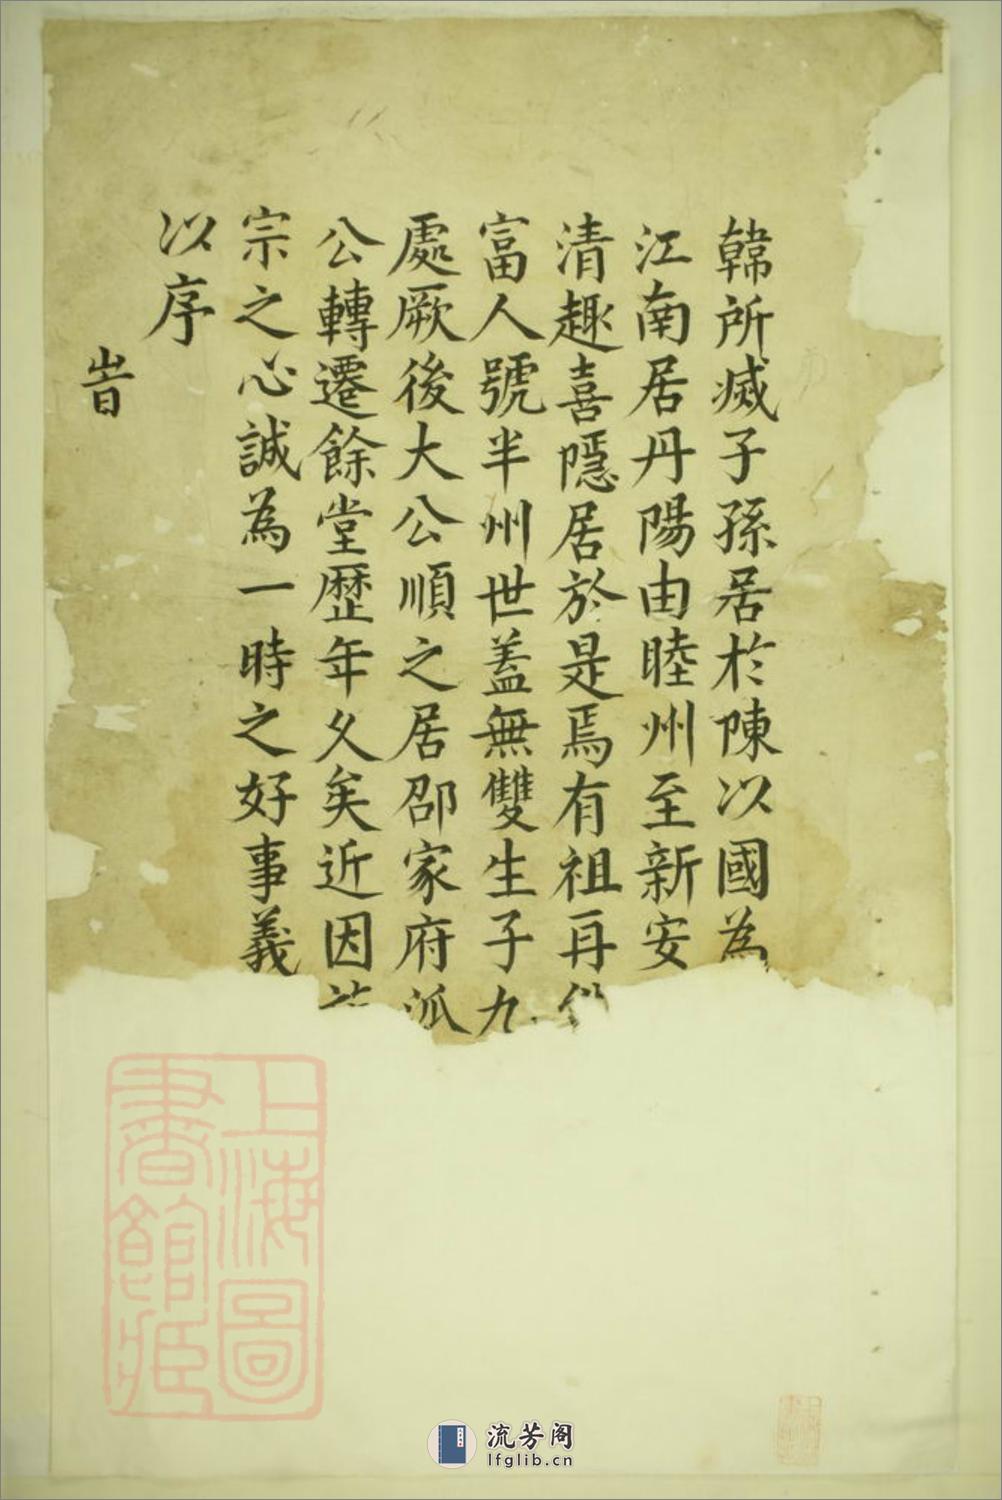 韓所滅子孫居於陳以國為
江南居丹陽由睦州至新安
清趣喜隱居於是焉有祖再
富人號半州世蓋無雙生子九
處厥後大公順之居邵家府派
公轉遷餘堂歷年久矣近因
宗之心誠為一時之好事義
以序
旹
上海圖
書館藏
流芳阁
lfglib.cn